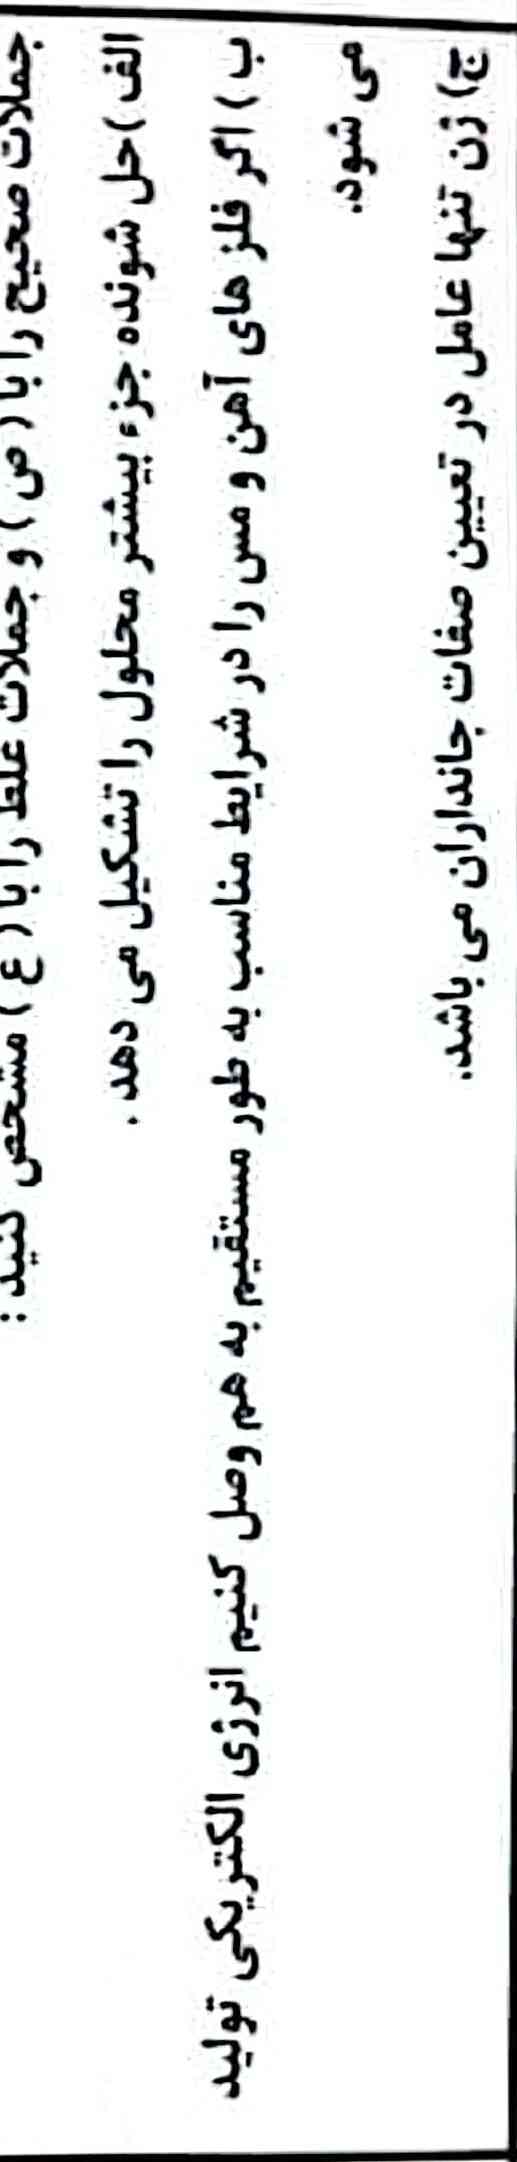 جملات صحیح را با ( ص ) و جملات غلط را با ( غ ) مشخص کنید :
الف ) حل شونده جزء بیشتر محلول را تشکیل می دهد .
ب ) اگر فلز های آهن و مس را در شرایط مناسب به طور مستقیم به هم وصل کنیم انرژی الکتریکی تولید
می شود.
ج) ژن تنها عامل در تعیین صفات جانداران می باشد.